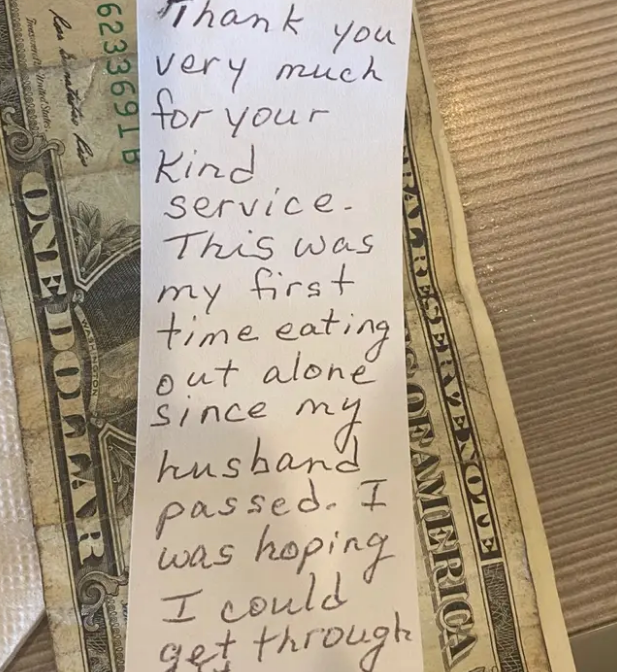 Thank you
very much
for your
Kind
service.
This was
my first
time eating
out alone
since my
husband
passed. I
was hoping
I could
get through
6233691B
ONE DOLLAR
WASHINGTON
RESERVE NOTE
OF AMERICA